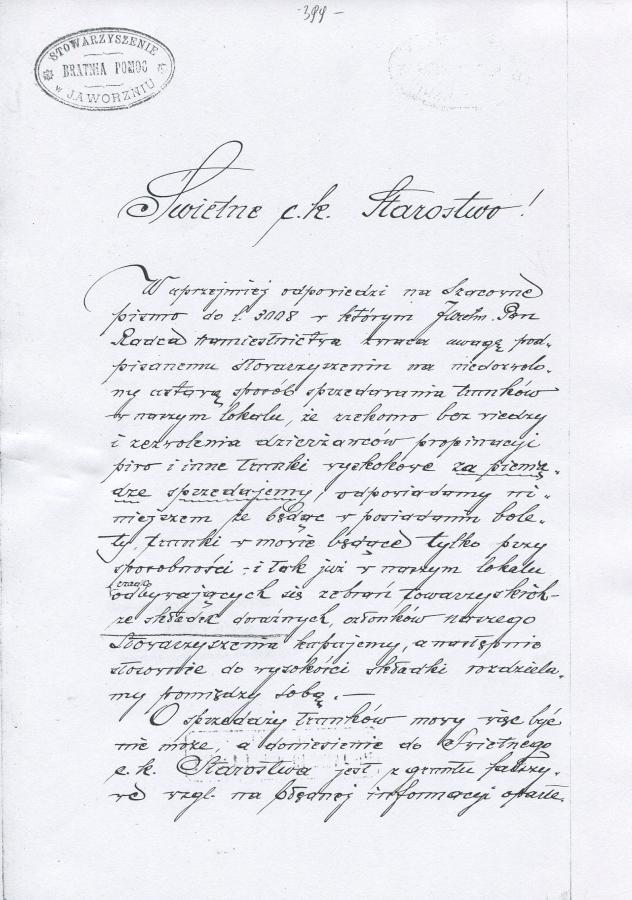 -399-
STOWARZYSZENIE
BRATNIA POMOC
w JAWORZNIU
Świetne c.k. Starostwo!
W uprzejmiej odpowiedzi na Szacowne
pismo do l. 3008 w którym Pan
Radca namiestnictwa zwraca uwagę pod-
pisanemu stowarzyszeniu na niedozwolo-
ny ustawą sposób sprzedawania trunków
w naszym lokalu, że rzekomo bez wiedzy
i zezwolenia dzierżawców propinacyi
piwo i inne trunki wyskokowe za pienią-
dze sprzedajemy, odpowiadamy ni-
niejszem że będąc w posiadaniu bole-
ty, trunki w mowie będące tylko przy
sposobności - i tak już w naszym lokalu
czasu
odbywających się zebrań towarzyskich -
ze składek doraźnych, członków naszego
Stowarzyszenia kupujemy, a następnie
stosownie do wysokości składki rozdziela-
my pomiędzy sobą. —
O sprzedaży trunków mowy więc być
nie może, a doniesienie do Świetnego
c.k. Starostwa jest z gruntu fałszy-
we wzgl. na błędnej informacyi oparte.